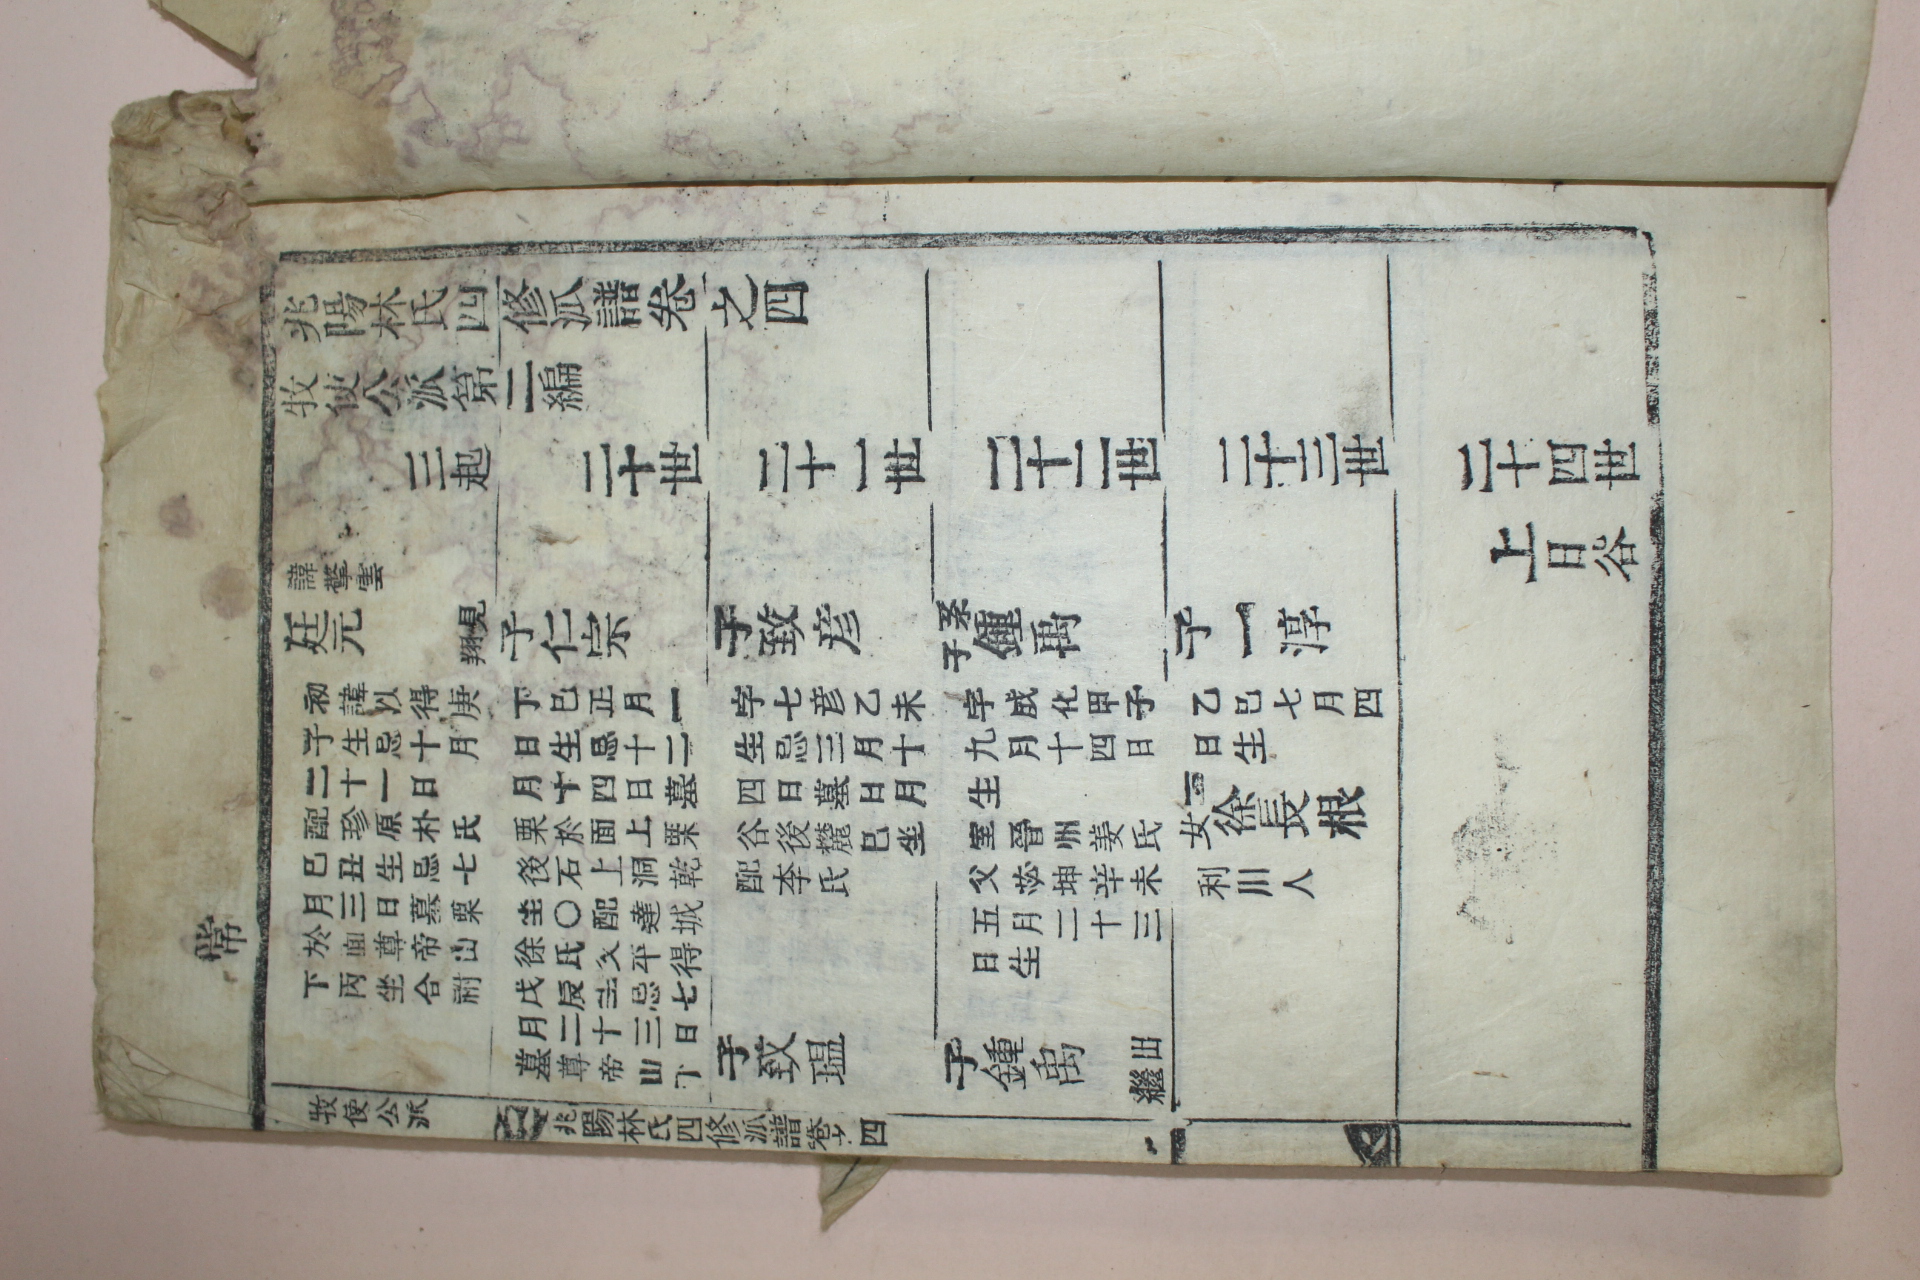 兆陽林氏四修派譜卷之四
牧使公派第二編
三起
二十世
二十一世
二十二世
二十三世
二十四世
上日谷
諱擎雲
廷元
翔見
初諱以得庚
子生忌十月
二十一日
配珍原朴氏
巳丑生忌七
月三日墓栗
於面尊帝山
下丙坐合祔
子仁宗
下巳正月一
日生忌十二
月十四日墓
栗於面上栗
後石上洞乾
坐〇配達城
徐氏父平得
戊辰生忌七
月二十三日
墓尊帝山下
子致彦
字七彦乙未
生忌三月十
四日墓日月
谷後麓巳坐
配李氏
子致瑥
系子鍾禹
字成化甲子
九月十四日
生
室晉州姜氏
父苾坤辛未
五月二十三
日生
子鍾禹
出繼
子一淳
乙巳七月四
日生
女一徐長根
利川人
常
牧使公派
兆陽林氏四修派譜卷之四
一